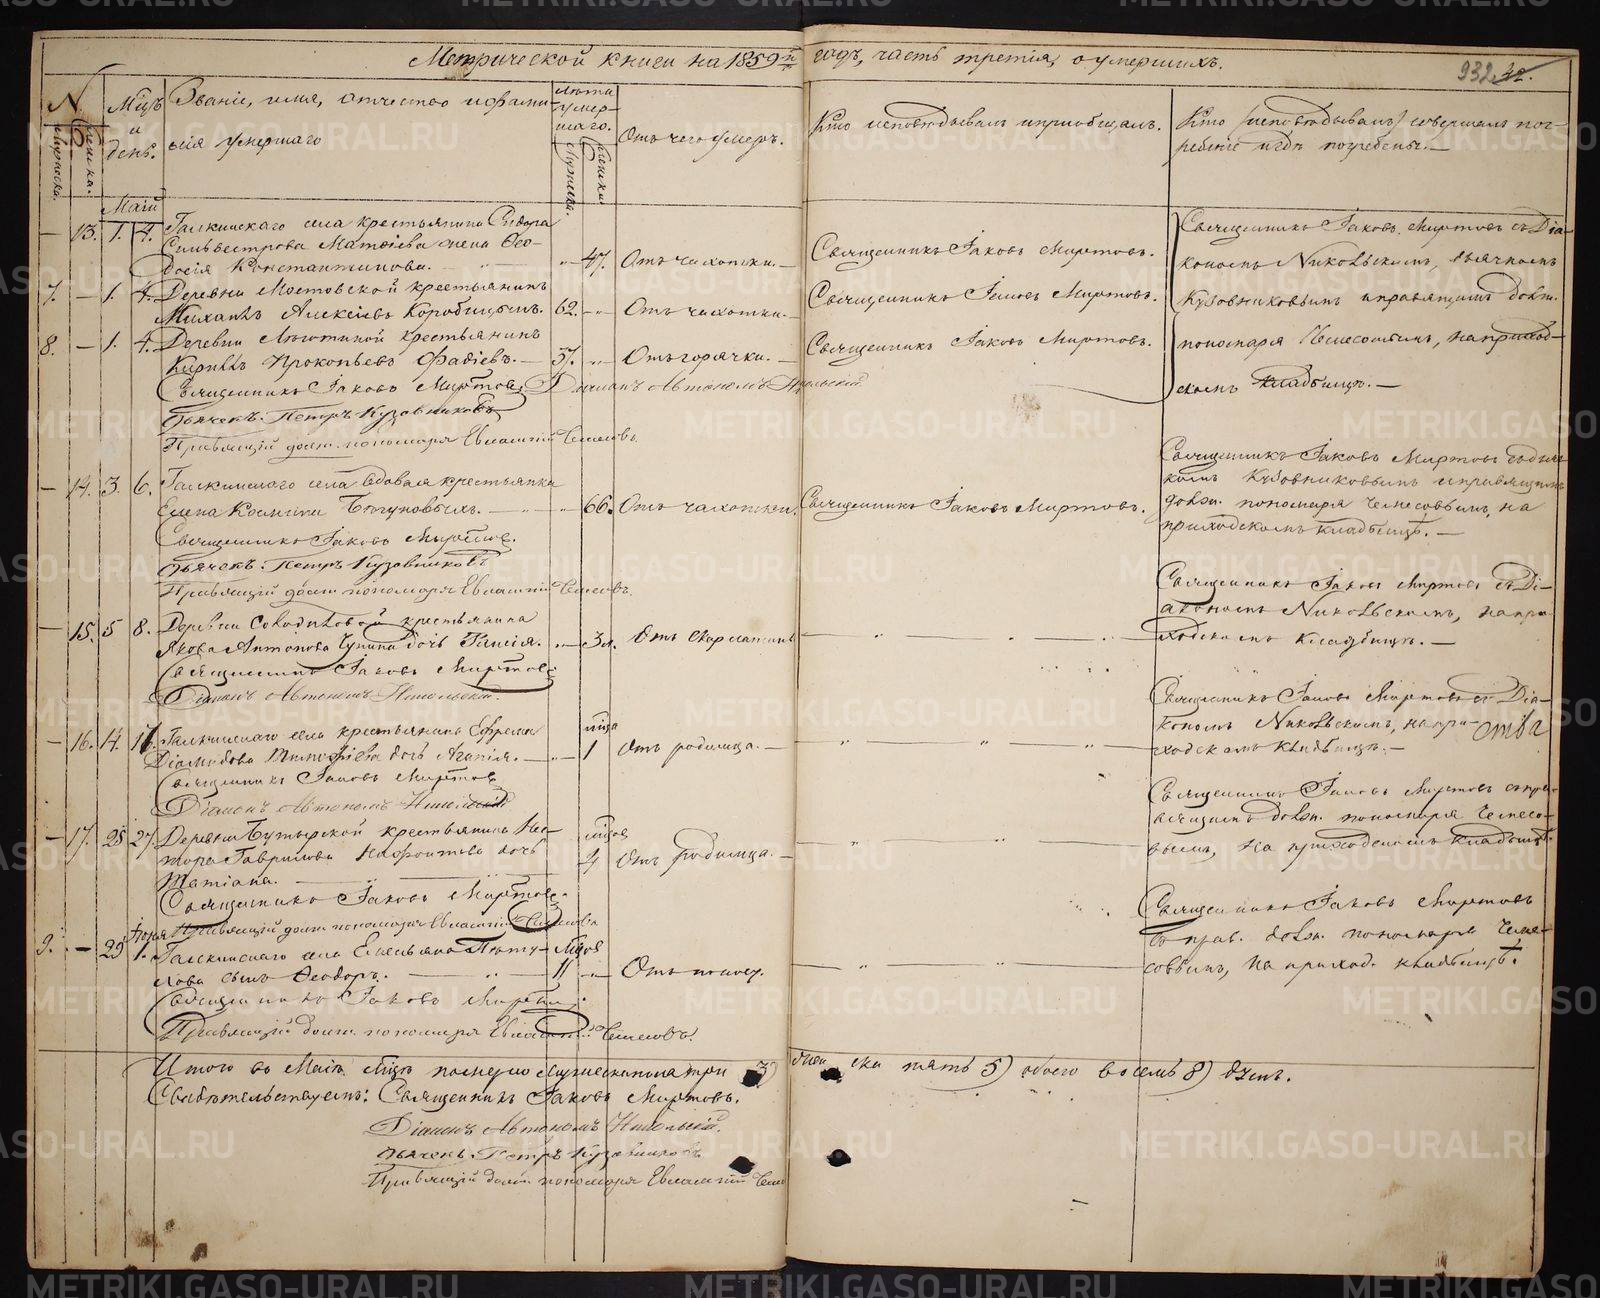 Метрической книги на 1859й годъ, часть третія, о умершихъ.
932
№
Мужеска.
Женска.
Мцъ и день.
Званіе, имя, отчество и фамилія умершаго
Лѣта умершаго.
Мужеска.
Женска.
Отъ чего умеръ.
Кто исповѣдывалъ и пріобщалъ.
Кто исповѣдывалъ совершалъ погребеніе и гдѣ погребены.
Маій
— 13. 1. 4. Галкинскаго села крестьянина Сидора
Сильвестрова Матвіева жена Ѳео-
досія Константинова. 47. Отъ чахотки. Священникъ Іаковъ Миртовъ.
Священникъ Іаковъ Миртовъ съ Діа-
кономъ Никольскимъ, дьячкомъ
Кузовниковымъ и правящимъ долж.
пономаря Чемесовымъ, на приход-
скомъ кладбищѣ.
7. — 1. 4. Деревни Мостовской крестьянинъ
Михаилъ Алексѣевъ Коробицынъ. 62. Отъ чахотки. Священникъ Іаковъ Миртовъ.
8. — 1. 4. Деревни крестьянинъ
Кириллъ Прокопьевъ Фадѣевъ. 57. Отъ горячки. Священникъ Іаковъ Миртовъ.
Священникъ Іаковъ Миртовъ. Діаконъ Автономъ Никольскій
Дьячекъ Петръ Кузовниковъ
Правящій долж. пономаря Евлампій Чемесовъ.
— 14. 3. 6. Галкинскаго села вдовая крестьянка
Елена Космина Бѣгуновыхъ. 66. Отъ чахотки. Священникъ Іаковъ Миртовъ.
Священникъ Іаковъ Миртовъ съ дьяч-
комъ Кузовниковымъ и правящимъ
долж. пономаря Чемесовымъ, на
приходскомъ кладбищѣ.
Священникъ Іаковъ Миртовъ.
Дьячекъ Петръ Кузовниковъ
Правящій долж пономаря Евлампій Чемесовъ.
— 15. 5 8. Деревни крестьянина
Якова Антонова дочь Таисія. 3 н. Отъ скарлатины
Священникъ Іаковъ Миртовъ съ Ді-
акономъ Никольскимъ, на при-
ходскомъ кладбищѣ.
Священникъ Іаковъ Миртовъ
Діаконъ Автономъ Никольскій.
— 16. 14. 17. Галкинскаго села крестьянина Ефрема
Діомидова Тимофѣева дочь Агапія. мца 1 Отъ родимца.
Священникъ Іаковъ Миртовъ съ Діа-
кономъ Никольскимъ, на при-
ходскомъ кладбищѣ.
Священникъ Іаковъ Миртовъ
Діаконъ Автономъ Никольскій
— 17. 25 27. Деревни Бутырской крестьянина Нес-
тора Гаврилова дочь
Татіана. мцов 4 Отъ родимца.
Священникъ Іаковъ Миртовъ съ пра-
вящимъ долж. пономаря Чемесо-
вымъ, на приходскомъ кладбищѣ.
Священникъ Іаковъ Миртовъ.
Правящій долж пономаря Евлампій Чемесовъ
Іюня
9. — 29 1. Галкинскаго села
сынъ Ѳеодоръ. Мцов 11 Отъ поносу.
Священникъ Іаковъ Миртовъ
съ прав. долж. пономаря Чеме-
совымъ, на приход. кладбищѣ.
Священникъ Іаковъ Миртовъ.
Правящій долж пономаря Евлампій Чемесовъ.
Итого въ Маіѣ мцѣ померло мужеска пола три 3) женска пять 5) обоего восемь 8) душъ.
Свидѣтельствуемъ: Священникъ Іаковъ Миртовъ.
Діаконъ Автономъ Никольскій.
Дьячекъ Петръ Кузовниковъ.
Правящій долж пономаря Евлампій
METRIKI.GASO-URAL.RU